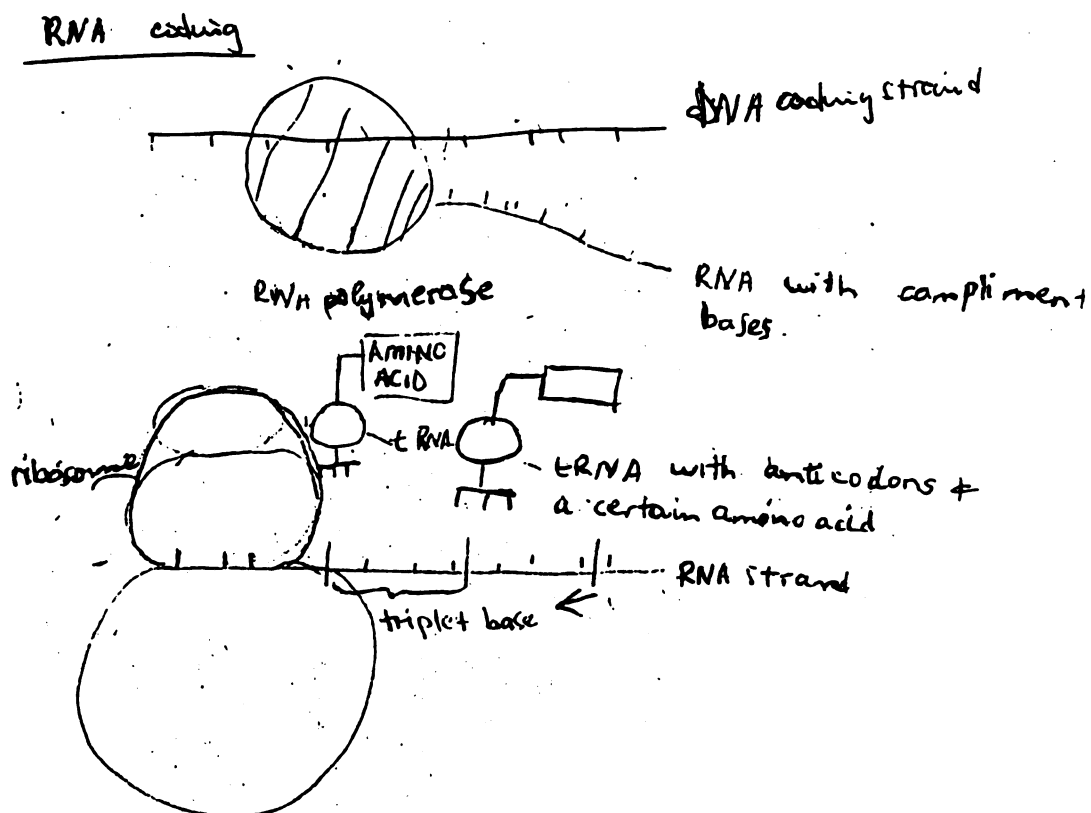 RNA coding
DNA coding strand
RNA with compliment
bases.
RNA polymerase
AMINO
ACID
ribosome
tRNA
tRNA with anticodons &
a certain amino acid
RNA strand
triplet base